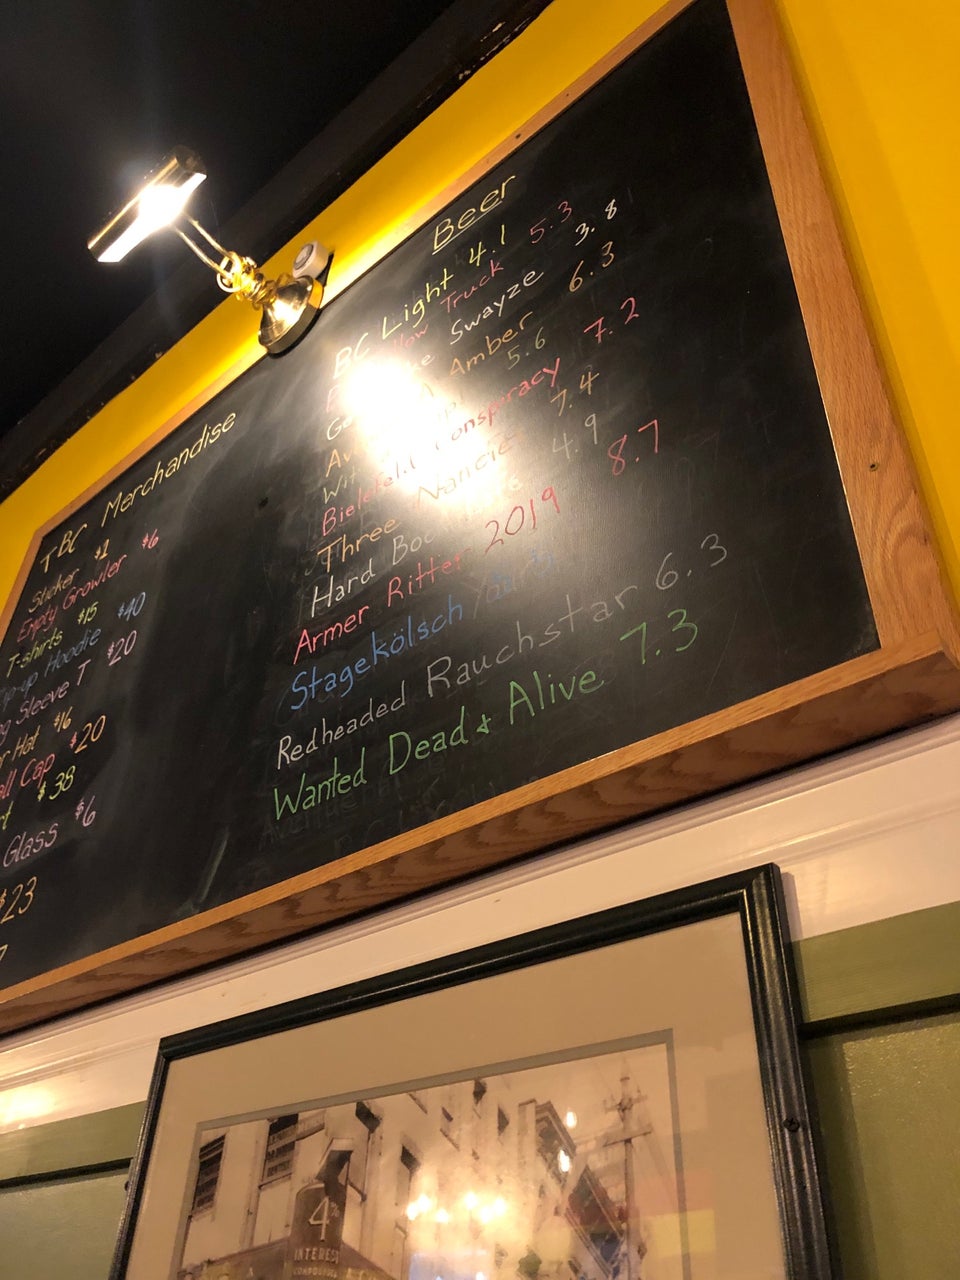 TBC Merchandise
Sticker $1
Empty Growler $6
T-shirts $15
Hoodie $40
Sleeve T $20
Hat $16
Cap $20
$38
Glass $6
$23
Beer
BC Light 4.1
Truck 5.3
Swayze 3.8
Amber 6.3
5.6
Bielefeld Conspiracy 7.2
Three Nancies 7.4
Hard 4.9
Armer Ritter 2019 8.7
Stagekölsch
Redheaded Rauchstar 6.3
Wanted Dead & Alive 7.3
4%
INTEREST
COMPOUNDED